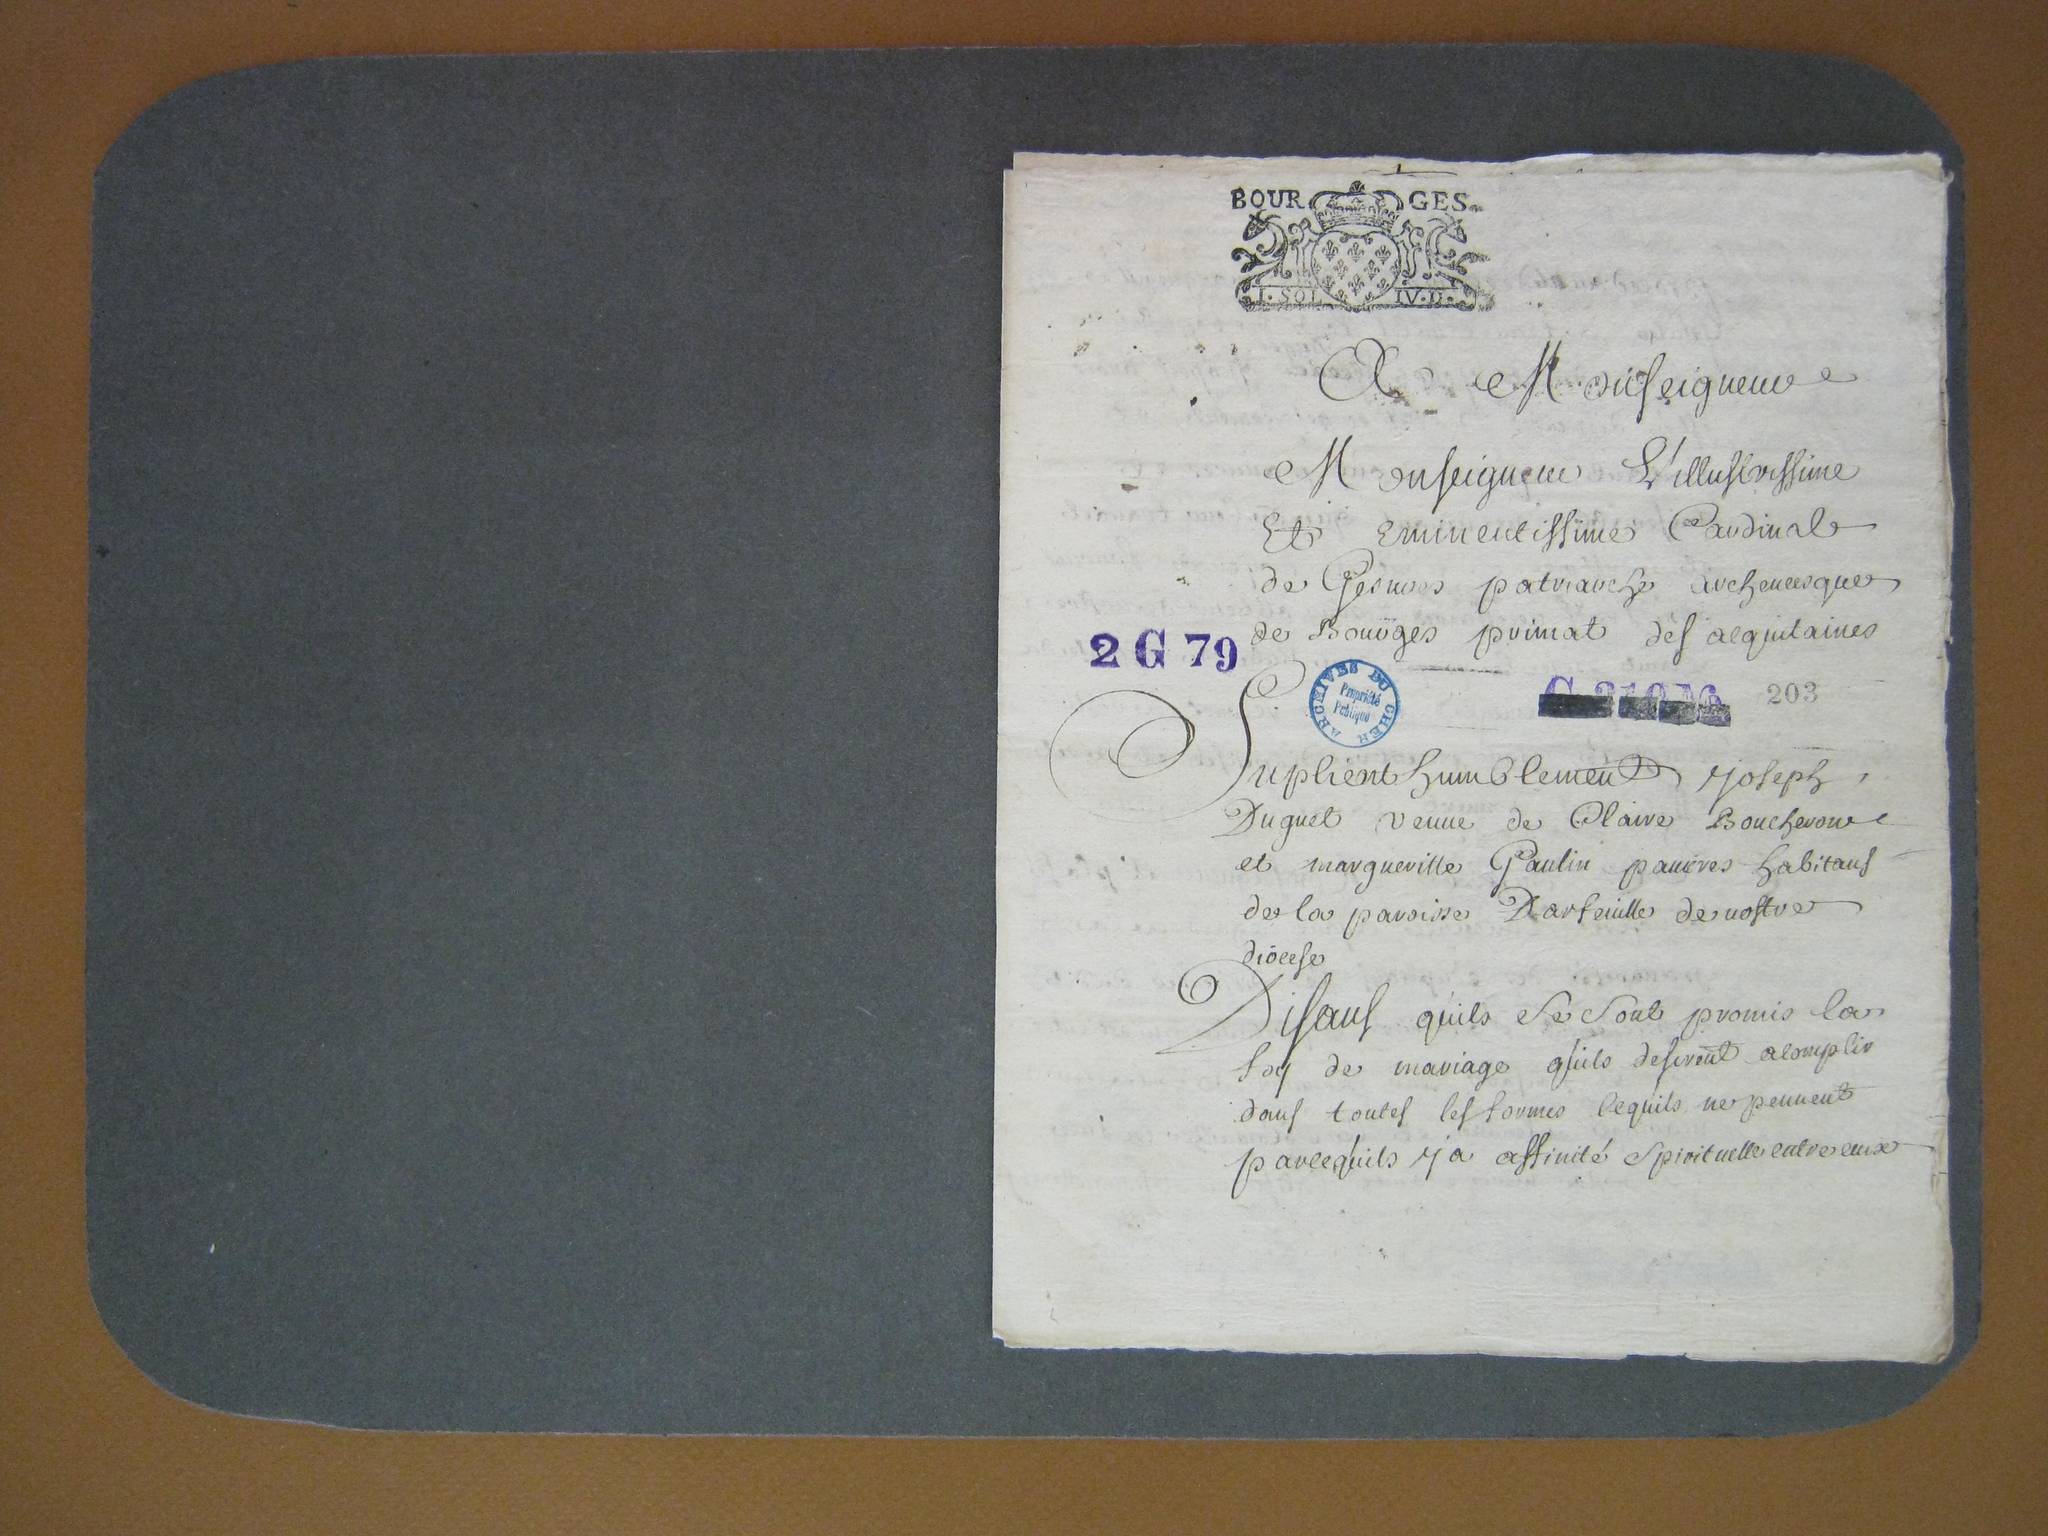 BOURGES
I·SOL IV·D·
A Monseigneur
Monseigneur L'illustrissime
Et Eminentissime Cardinal
de Gesures patriarche archeuesque
de Bourges primat des acquitaines
2 G 79
ARCHIVES DU CHER
Propriété
Publique
203
Suplient humblement joseph
Duguet veuue de Claire Boucheron
et margueritte Gaulin pauvres habitans
de la paroisse Darfeuille de nostre
diocese
Disans quils Se Sont promis la
foy de mariage quils desirent acomplir
dans toutes les formes cequils ne peuuent
parcequils y a affinité Spirituelle entre eux